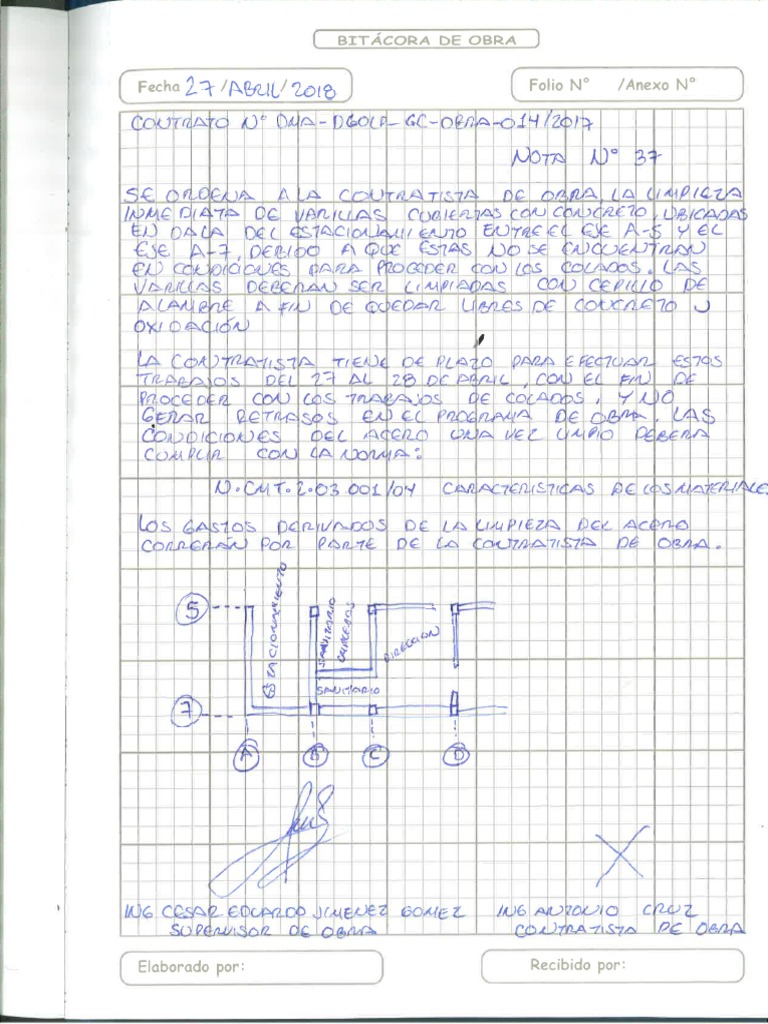 BITÁCORA DE OBRA
Fecha 27/ABRIL/2018
Folio N° /Anexo N°
CONTRATO N° DMA-DGOLP-GC-OBRA-014/2017
NOTA N° 37
SE ORDENA A LA CONTRATISTA DE OBRA, LA LIMPIEZA
INMEDIATA DE VARILLAS CUBIERTAS CON CONCRETO, UBICADAS
EN DALA DEL ESTACIONAMIENTO ENTRE EL EJE A-5 Y EL
EJE A-7, DEBIDO A QUE ESTAS NO SE ENCUENTRAN
EN CONDICIONES PARA PROCEDER CON LOS COLADOS. LAS
VARILLAS DEBERAN SER LIMPIADAS CON CEPILLO DE
ALAMBRE A FIN DE QUEDAR LIBRES DE CONCRETO U
OXIDACIÓN
LA CONTRATISTA TIENE DE PLAZO PARA EFECTUAR ESTOS
TRABAJOS DEL 27 AL 28 DE ABRIL, CON EL FIN DE
PROCEDER CON LOS TRABAJOS DE COLADOS, Y NO
GERAR RETRASOS EN EL PROGRAMA DE OBRA. LAS
CONDICIONES DEL ACERO UNA VEZ LIMPIO DEBERA
CUMPLIR CON LA NORMA:
N.CMT.2.03.001/04 CARACTERISTICAS DE LOS MATERIALES
LOS GASTOS DERIVADOS DE LA LIMPIEZA DEL ACERO
CORRERÁN POR PARTE DE LA CONTRATISTA DE OBRA.
5
ESTACIONAMIENTO
SANITARIO
DIRECCION
SANITARIO
7
A B C D
ING. CESAR EDUARDO JIMENEZ GOMEZ
SUPERVISOR DE OBRA
ING ANTONIO CRUZ
CONTRATISTA DE OBRA
Elaborado por:
Recibido por: